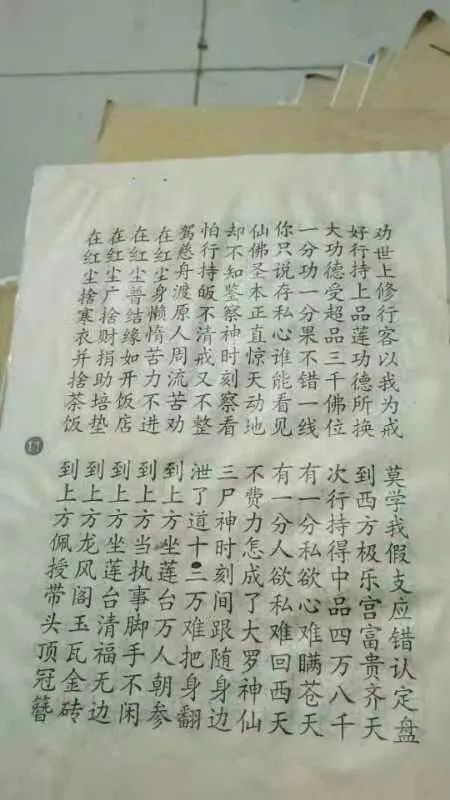 劝世上修行客以我为戒 莫学我假支应错认定盘
好行持上品莲功德所换 到西方极乐宫富贵齐天
大功德受超品三千佛位 次行持得中品四万八千
一分功一分果不错一线 有一分私欲心难瞒苍天
你只说存私心谁能看见 有一分人欲私难回西天
仙佛圣本正直惊天动地 不费力怎成了大罗神仙
却不知鉴察神时刻察看 三尸神时刻间跟随身边
怕行持皈不清戒又不整 泄了道十三万难把身翻
驾慈舟渡原人周流苦劝 到上方坐莲台万人朝参
在红尘身懒惰苦力不进 到上方当执事脚手不闲
在红尘普结缘如开饭店 到上方坐莲台清福无边
在红尘广捨财捐助培垫 到上方龙风阁玉瓦金砖
在红尘捨寒衣并捨茶饭 到上方佩授带头顶冠簪